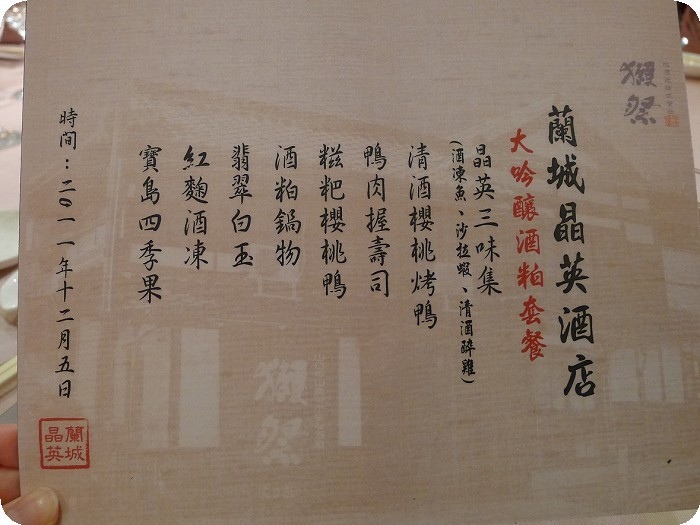 獺祭
蘭城晶英酒店
大吟釀酒粕套餐
晶英三味集
(酒凍魚、沙拉蝦、清酒醉雞)
清酒櫻桃烤鴨
鴨肉握壽司
糍粑櫻桃鴨
酒粕鍋物
翡翠白玉
紅麴酒凍
寶島四季果
時間：二〇一一年十二月五日
蘭城
晶英
獺祭